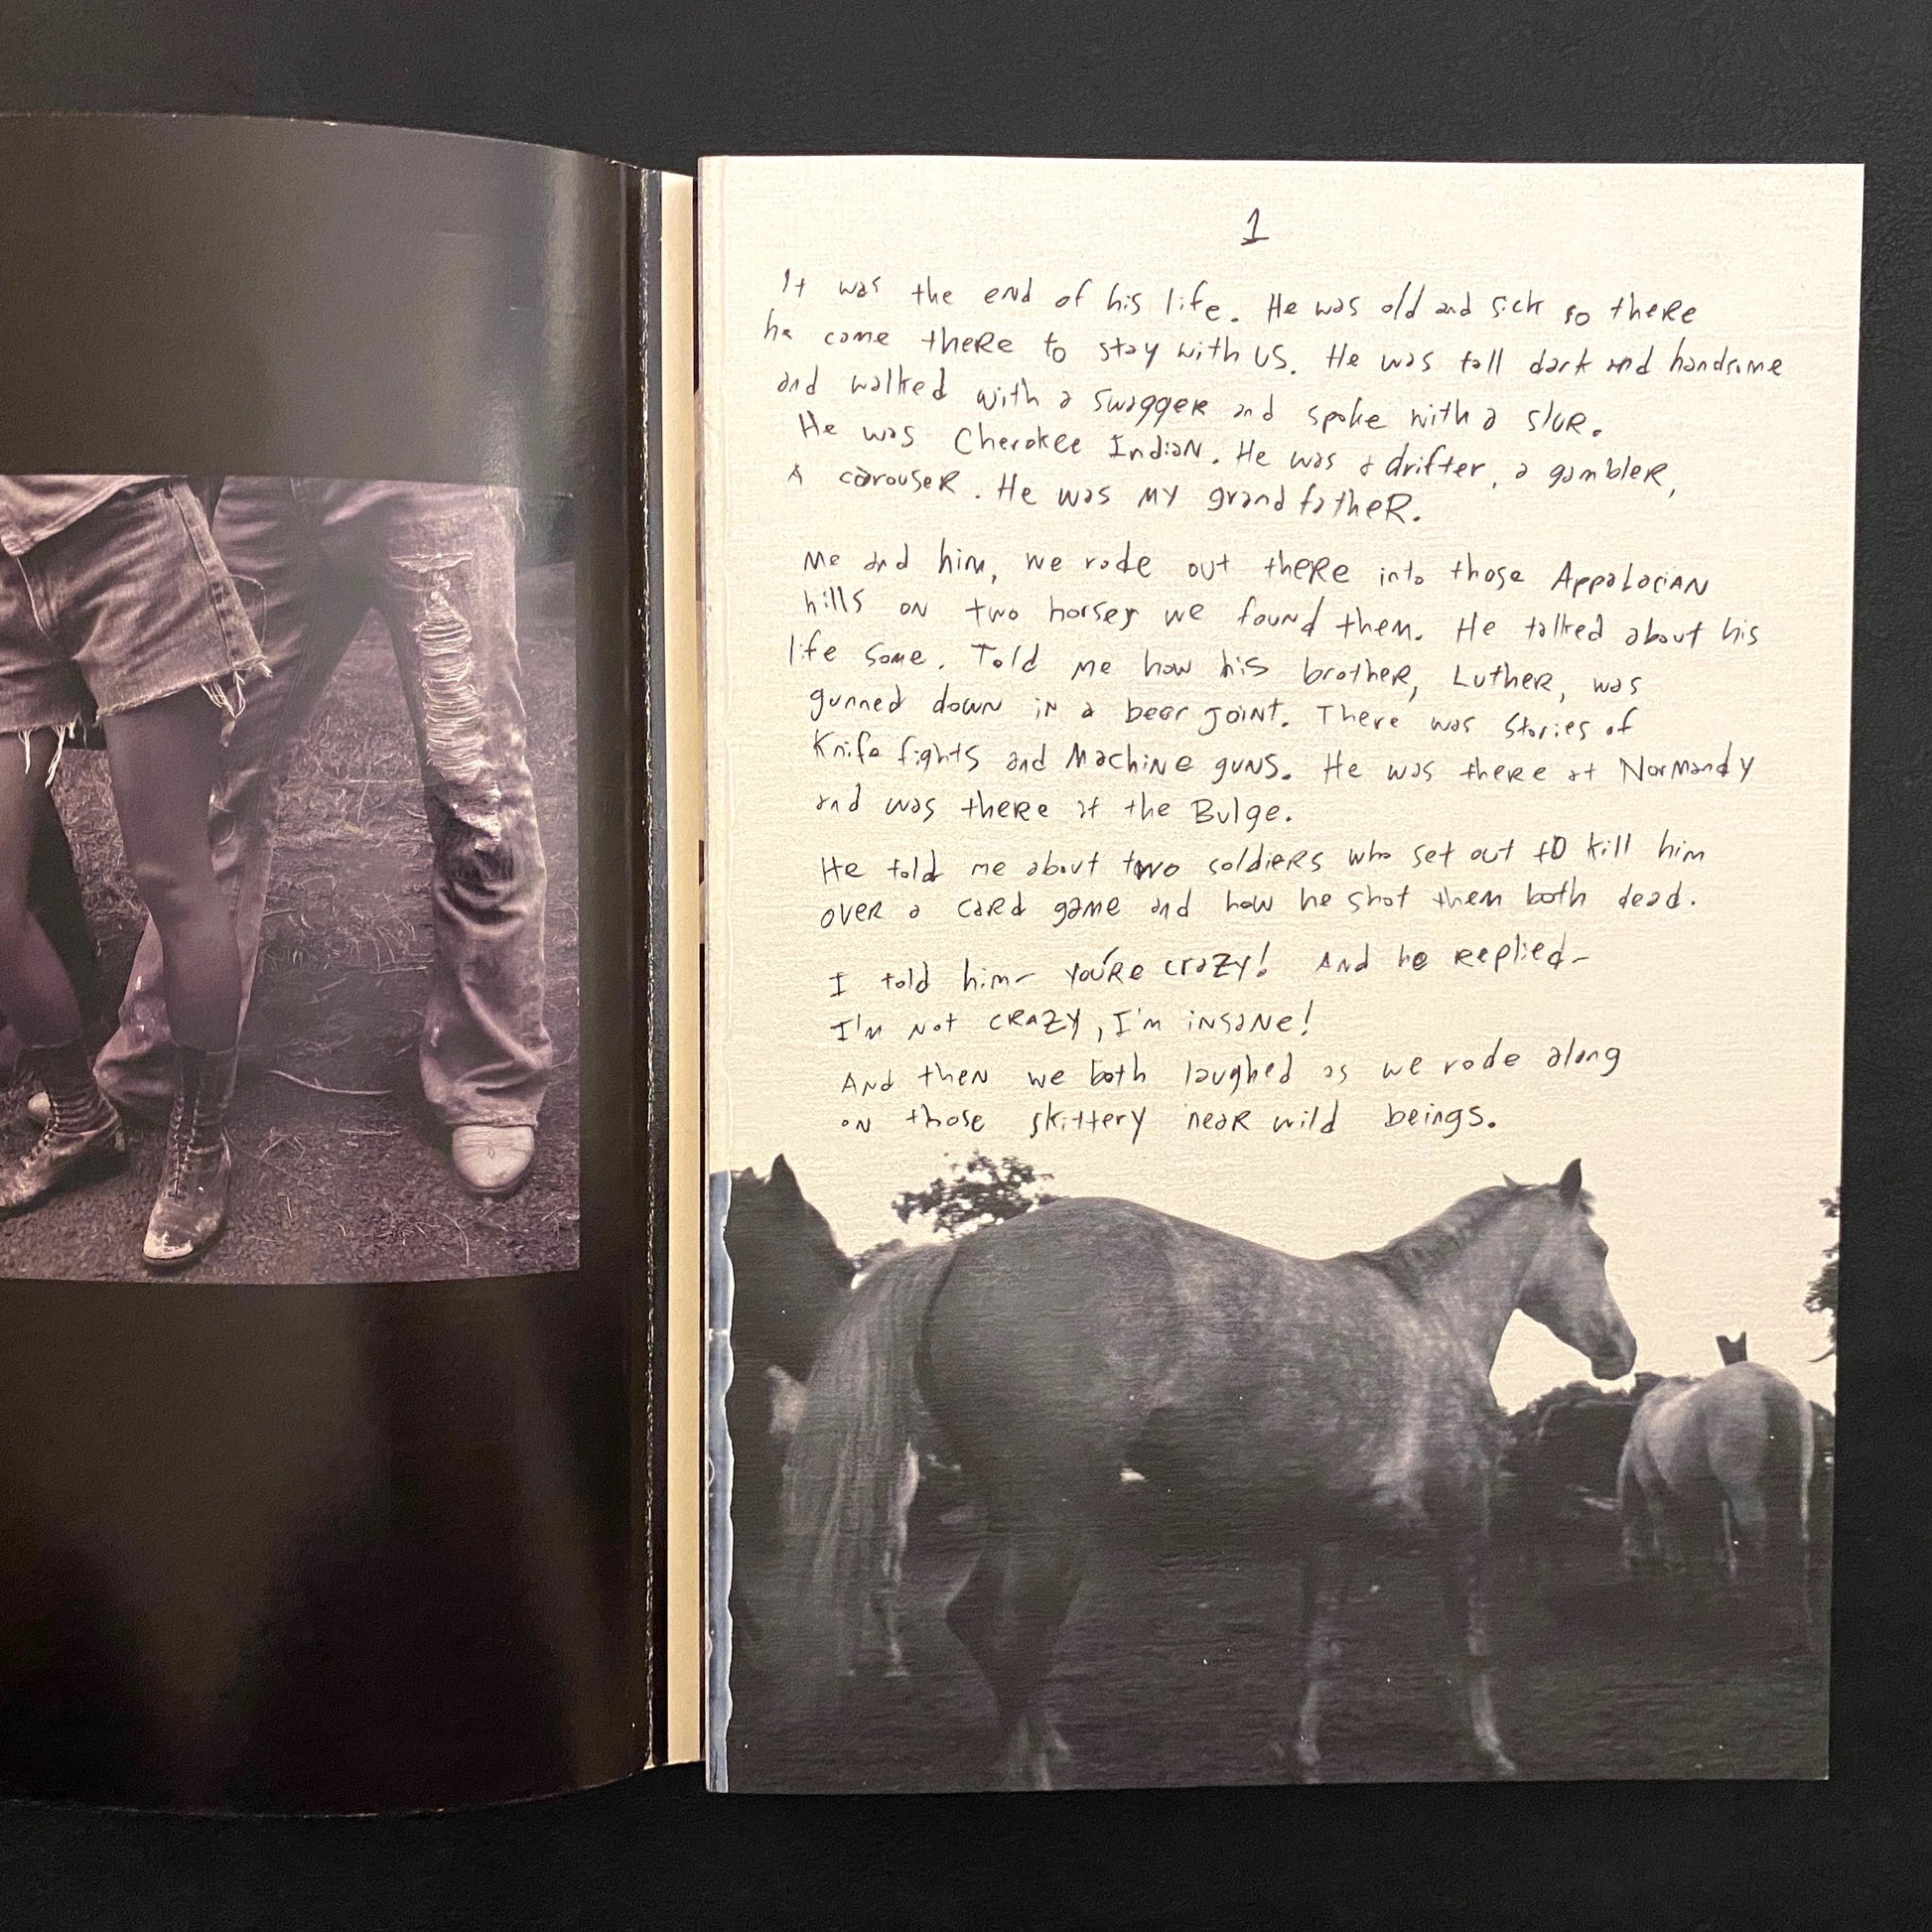 1
It was the end of his life. He was old and sick so there
he come there to stay with us. He was tall dark and handsome
and walked with a swagger and spoke with a slur.
He was Cherokee Indian. He was a drifter, a gambler,
A carouser. He was my grand father.
Me and him, we rode out there into those Appalacian
hills on two horses we found them. He talked about his
life some. Told me how his brother, Luther, was
gunned down in a beer joint. There was stories of
Knife fights and Machine guns. He was there at Normandy
and was there at the Bulge.
He told me about two soldiers who set out to kill him
over a card game and how he shot them both dead.
I told him- you're crazy! And he replied-
I'm not CRAZY, I'm insane!
And then we both laughed as we rode along
on those skittery near wild beings.